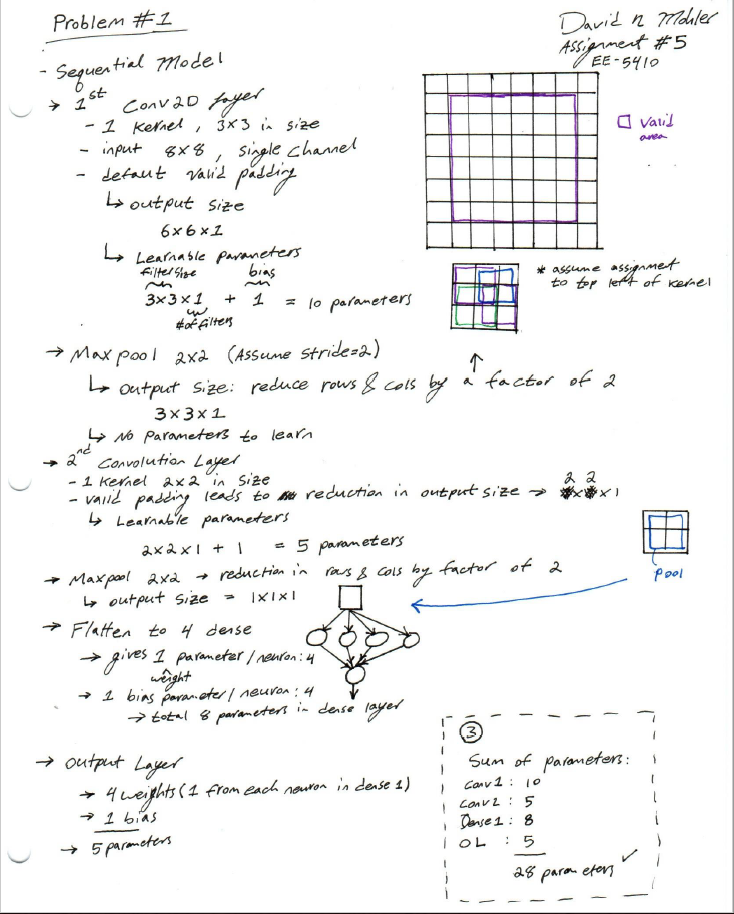 Problem #1
David n Mohler
Assignment #5
EE-5410
- Sequential Model
→ 1st Conv2D layer
- 1 Kernel, 3x3 in size
- input 8x8, single channel
- default valid padding
↳ output size
6x6x1
↳ Learnable parameters
filter size bias
3x3x1 + 1 = 10 parameters
# of filters
□ valid
area
* assume assignment
to top left of kernel
→ Maxpool 2x2 (Assume stride=2)
↳ output size: reduce rows & cols by a factor of 2
3x3x1
↳ No parameters to learn
→ 2nd Convolution Layer
- 1 kernel 2x2 in size
- valid padding leads to reduction in output size → 2x2x1
↳ Learnable parameters
2x2x1 + 1 = 5 parameters
→ Maxpool 2x2 → reduction in rows & cols by factor of 2
↳ output size = 1x1x1
pool
→ Flatten to 4 dense
→ gives 1 parameter/neuron: 4
weight
→ 1 bias parameter/neuron: 4
→ total 8 parameters in dense layer
→ output Layer
→ 4 weights (1 from each neuron in dense 1)
→ 1 bias
→ 5 parameters
③
Sum of parameters:
conv1: 10
conv2: 5
Dense1: 8
OL : 5
28 parameters ✓